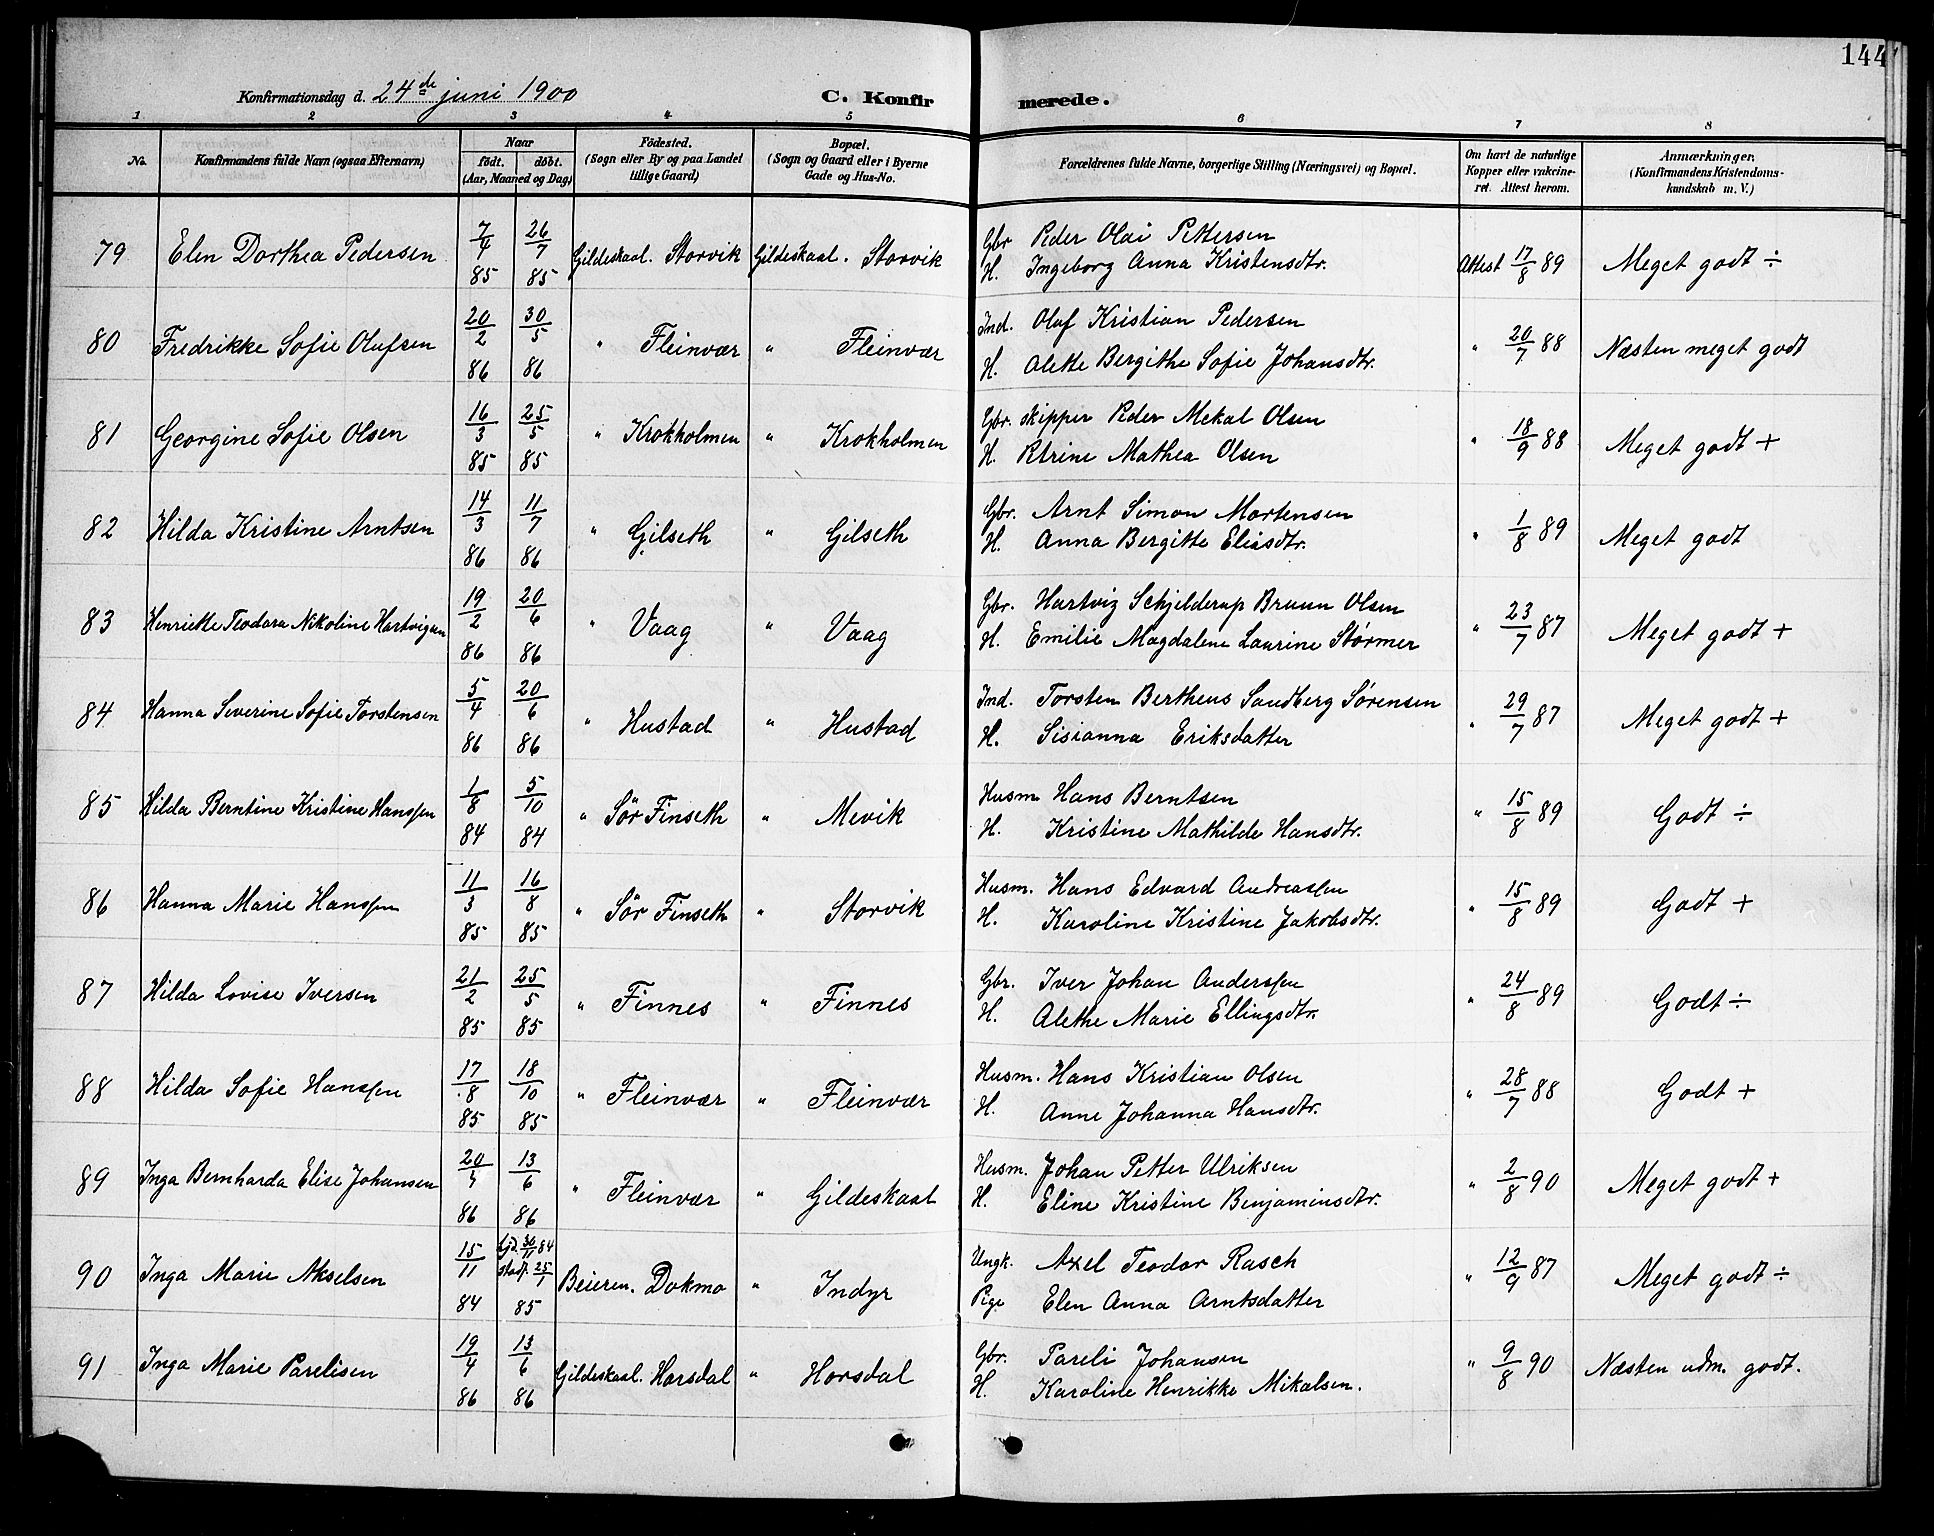 144
Konfirmationsdag d. 24de juni 1900 C. Konfirmerede.
1 2 3 4 5 6 7 8
No. Konfirmandens fulde Navn (ogsaa Efternavn) Naar født. døbt. (Aar, Maaned og Dag) Fødested. (Sogn eller By og paa Landet tillige Gaard) Bopæl. (Sogn og Gaard eller i Byerne Gade og Hus-No. Forældrenes fulde Navne, borgerlige Stilling (Næringsvei) og Bopæl. Om havt de naturlige Kopper eller vakcineret. Attest herom. Anmærkninger. (Konfirmandens Kristendomskundskab m. V.)
79 Elen Dorthea Pedersen 7/4 85 26/7 85 Gildeskaal. Storvik Gildeskaal. Storvik Gbr Peder Olai Pettersen
H. Ingeborg Anna Kristensdtr. Attest 17/8 89 Meget godt ÷
80 Fredrikke Sofie Olufsen 20/2 86 30/5 86 " Fleinvær " Fleinvær Ind. Oluf Kristian Pedersen
H. Alette Bergithe Sofie Johansdtr. " 20/7 88 Næsten meget godt
81 Georgine Sofie Olsen 16/3 85 25/5 85 " Krokholmen " Krokholmen Gbr. skipper Peder Mekal Olsen
H. Petrine Mathea Olsen " 18/9 88 Meget godt +
82 Hilda Kristine Arntsen 14/3 86 11/7 86 " Gilseth " Gilseth Gbr. Arnt Simon Mortensen
H. Anna Bergitte Eliasdtr. " 1/8 89 Meget godt
83 Henriette Teodora Nikoline Hartvigsen 19/2 86 20/6 86 " Vaag " Vaag Gbr. Hartvig Schjelderup Bruun Olsen
H. Emilie Magdalene Laurine Størmer " 23/7 87 Meget godt +
84 Hanna Severine Sofie Torstensen 5/4 86 20/6 86 " Hustad " Hustad Ind. Torsten Bertheus Sandberg Sørensen
H. Sisianna Eriksdatter " 29/7 87 Meget godt +
85 Hilda Berntine Kristine Hanssen 1/8 84 5/10 84 " Sör Finseth " Mevik Husm Hans Berntsen
H. Kristine Mathilde Hansdtr. " 15/8 89 Godt ÷
86 Hanna Marie Hanssen 11/3 85 16/8 85 " Sör Finseth " Storvik Husm. Hans Edvard Andreassen
H. Karoline Kristine Jakobsdtr. " 15/8 89 Godt +
87 Hilda Lovise Iversen 21/2 85 25/5 85 " Finnes " Finnes Gbr. Iver Johan Anderssen
H. Alethe Marie Ellingsdtr. " 24/8 89 Godt ÷
88 Hilda Sofie Hanssen 17/8 85 18/10 85 " Fleinvær " Fleinvær Husm. Hans Kristian Olsen
H. Anne Johanna Hansdtr. " 28/7 88 Godt +
89 Inga Bernharda Elise Johansen 20/ 86 13/6 86 " Fleinvær " Gildeskaal Husm. Johan Petter Ulriksen
H. Eline Kristine Benjaminsdtr. " 2/8 90 Meget godt +
90 Inga Marie Akselsen 15/11 84 hjd. 30/11 84 stadf. 25/1 85 Beieren. Dokmo " Indyr Ungk. Axel Teodor Rasch
Pige Elen Anna Arntsdatter " 12/9 87 Meget godt ÷
91 Inga Marie Parelisen 19/4 86 13/6 86 Gildeskaal. Horsdal " Horsdal Gbr. Pareli Johansen
H. Karoline Henrikke Mikalsen. " 9/8 90 Næsten udm. godt.